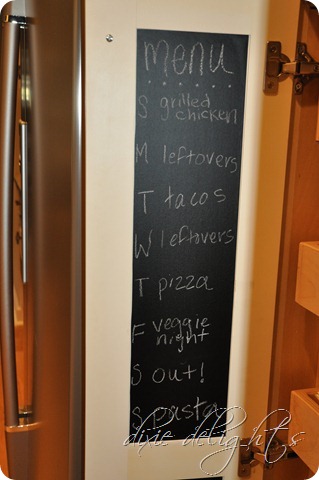 menu
S grilled
chicken
M leftovers
T tacos
W leftovers
T pizza
F veggie
night
S out!
S pasta
dixie delights